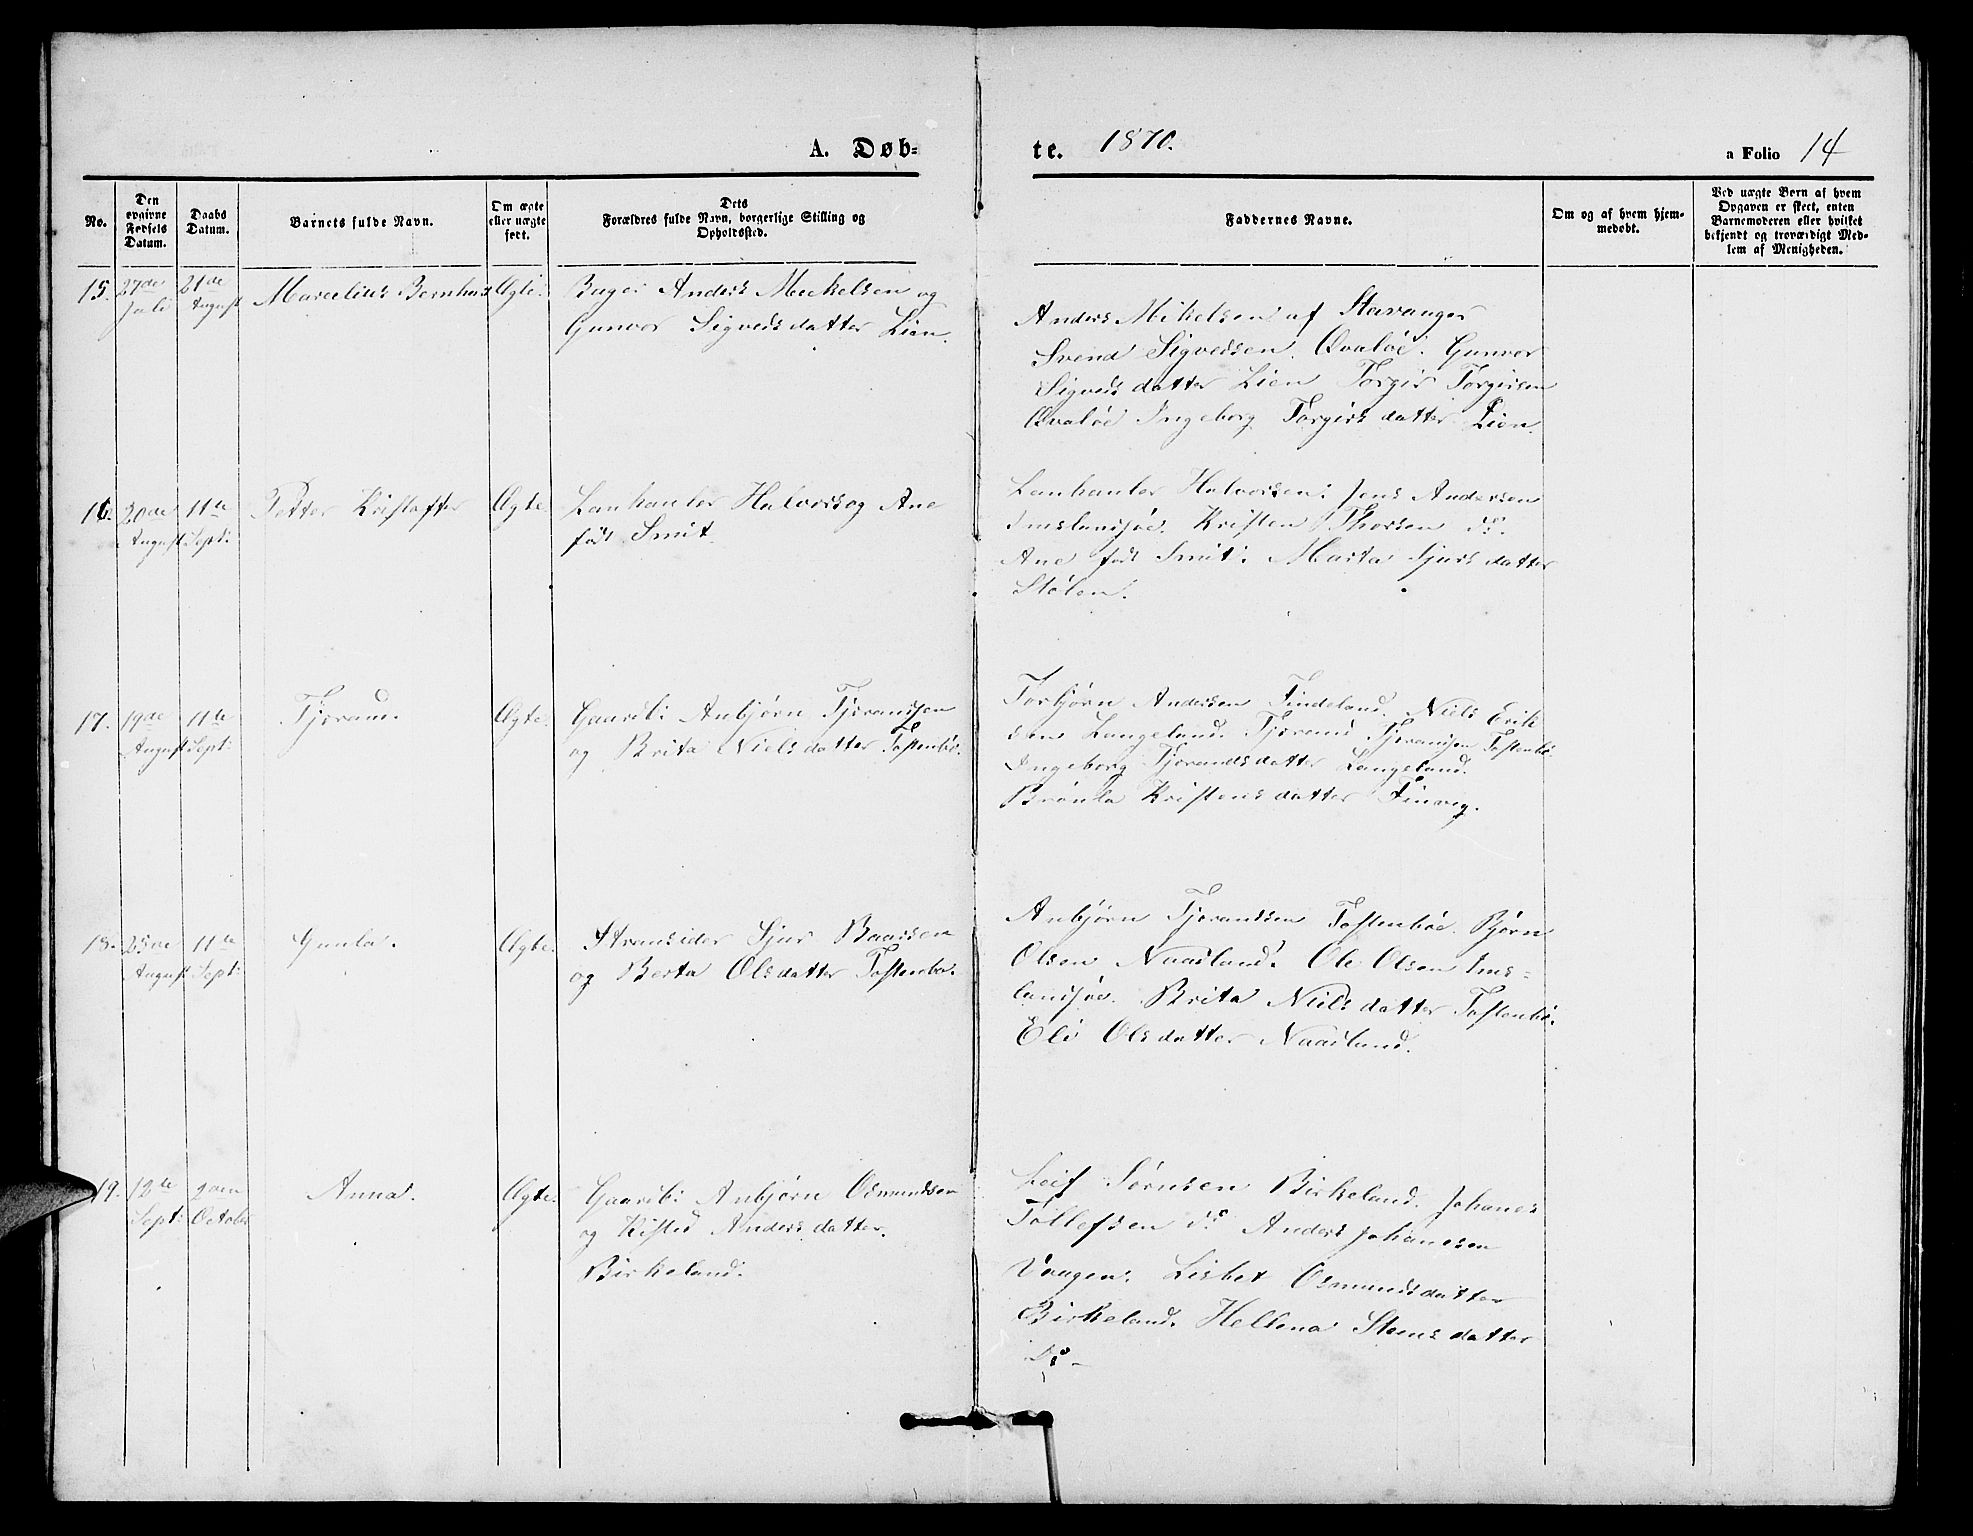 A. Døb=
te. 1870.
a Folio 14
No.
Den
opgivne
Fødsels
Datum.
Daabs
Datum.
Barnets fulde Navn.
Om ægte
eller uægte
født.
Dets
Forældres fulde Navn, borgerlige Stilling og
Opholdssted.
Faddernes Navne.
Om og af hvem hjem-
medøbt.
Ved uægte Børn af hvem
Opgaven er skeet, enten
Barnemoderen eller hvilket
bekjendt og troværdigt Med-
lem af Menigheden.
15.
27de
Juli
21de
August
Marcelius Bernhus
Ægte.
Anders Mickelsen og
Gunvor Sigvedsdatter Lien.
Anders Mikelsen af Stavanger
Svend Sigvedsen. Qvaløe. Gunvor
Sigvedsdatter Lien Torgir Torgirsen
Qvaløe Ingeborg Torgirsdatter Lien.
16.
20de
August
11te
Sept:
Petter Kristofter
Ægte
Lanhanler Halvors og Ane
fød Smit.
Lanhanler Halvorsen. Jens Andersen
Imslandsøe. Kristen Thorsen do.
Ane fød Smit. Marta Sjursdatter
Stølen.
17.
19de
August
11te
Sept:
Tjøran.
Ægte.
Gaardb: Anbjørn Tjørandsen
og Brita Nielsdatter Tostenbø.
Torbjørn Andersen Findeland. Niels Erik
sen Langeland. Tjørand Tjørandsen Tostenbø.
Ingeborg Tjørandsdatter Langeland.
Brønla Kristensdatter Finvig.
18.
25ve
August
11te
Sept:
Gunla.
Ægte.
Stransider Sjur Baarsen
og Berta Olsdatter Tostenbø.
Anbjørn Tjørandsen Tostenbøe. Bjørn
Olsen Naadland. Ole Olsen Ims=
landsøe. Brita Nielsdatter Tostenbø.
Eli Olsdatter Naadland.
19.
12te
Sept:
2den
October
Anna.
Ægte.
Gaardb: Anbjørn Osmundsen
og Kisted Andersdatter.
Birkeland.
Leif Sørnsen Birkeland. Johanes
Tollefsen do Anders Johanesen
Vaagen. Lisbet Osmundsdatter
Birkeland. Hellena Steensdatter
Do-